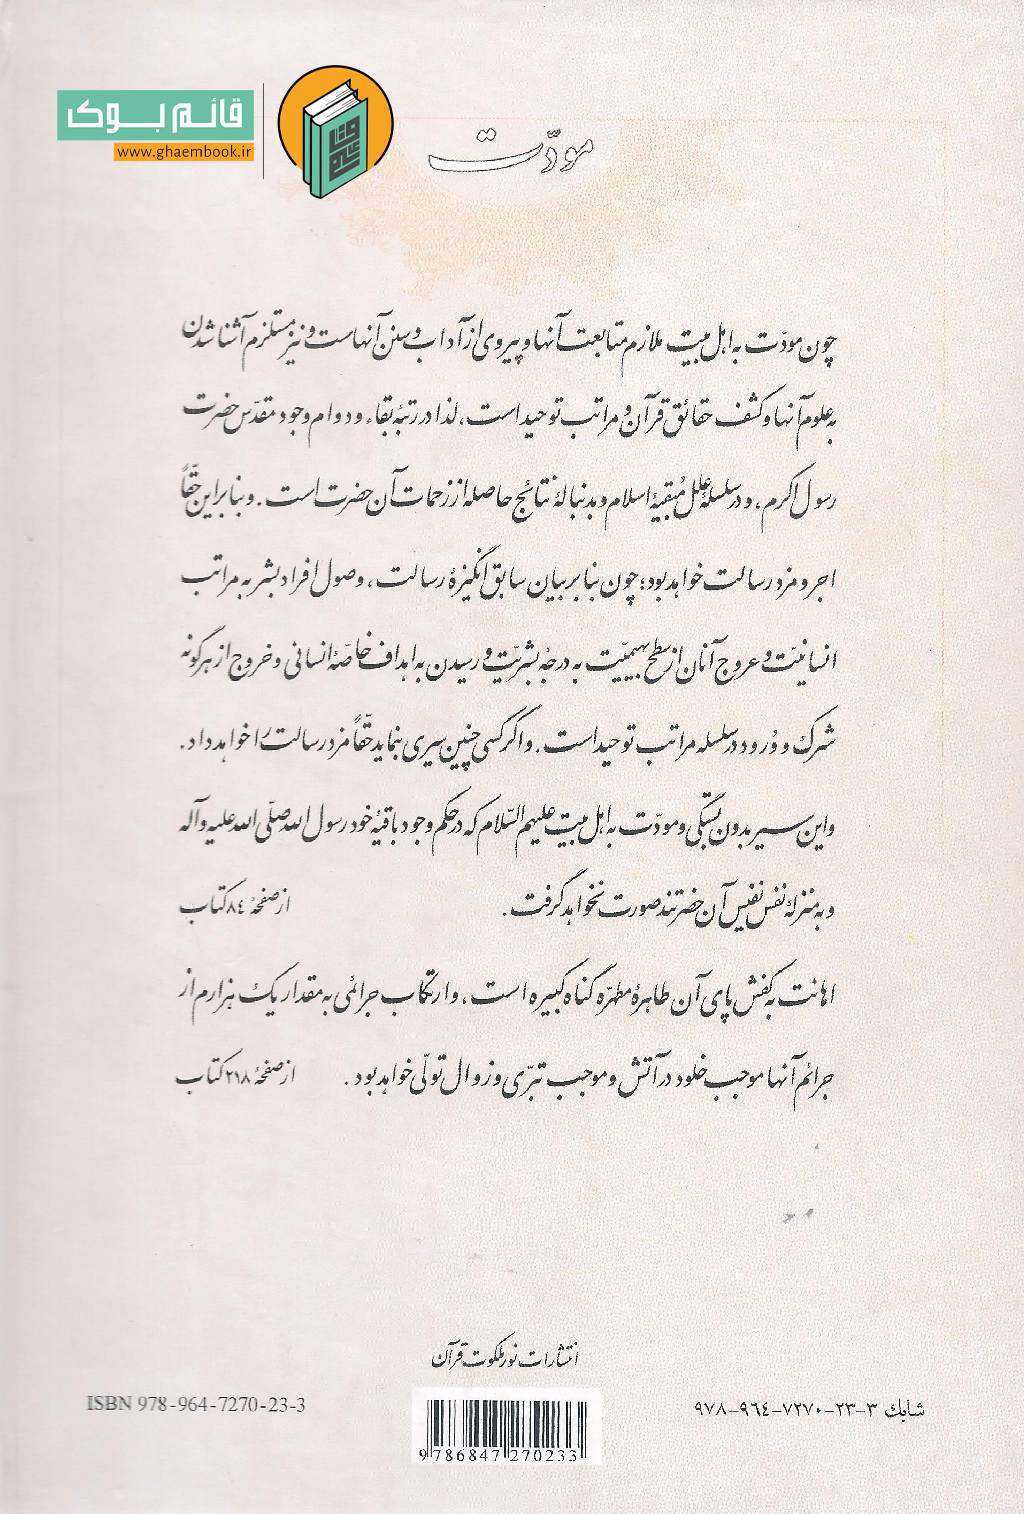 قائم بوک
www.ghaembook.ir
مودّت
چون مودّت به اهل بیت ملازم متابعت آنها و پیروی از آداب و سنن آنهاست و نیز مستلزم آشنا شدن
به علوم آنها و کشف حقائق قرآن و مراتب توحید است، لذا در رتبۀ بقاء و دوام وجود مقدّس حضرت
رسول اکرم، و در سلسلۀ علل مُبقیۀ اسلام و بدنبالۀ نتائج حاصله از زحمات آن حضرت است. و بنابراین حقّاً
اجر و مزد رسالت خواهد بود؛ چون بنا بر بیان سابق انگیزۀ رسالت، وصول افراد بشر به مراتب
انسانیّت و عروج آنان از سطح بهیمیّت به درجۀ بشریّت و رسیدن به اهداف خاصّۀ انسانی و خروج از هرگونه
شرک و وُرود در سلسله مراتب توحید است. و اگر کسی چنین سیری بنماید حقّاً مزد رسالت را خواهد داد.
و این سیر بدون بستگی و مودّت به اهل بیت علیهم السّلام که در حکم وجود باقیۀ خود رسول الله صلّی الله علیه و آله
و به منزلۀ نفس نفیس آن حضرتند صورت نخواهد گرفت. از صفحۀ ۸٤ کتاب
اهانت به کفش پای آن طاهرۀ مطهّره گناه کبیره است، و ارتکاب جرائمی به مقدار یک هزارم از
جرائم آنها موجب خلود در آتش و موجب تبرّی و زوال تولّی خواهد بود. از صفحۀ ۲۱۸ کتاب
انتشارات نور ملکوت قرآن
ISBN 978-964-7270-23-3
شابک ۳-۲۳-۷۲۷۰-۹٦٤-۹۷۸
9 786847 270233